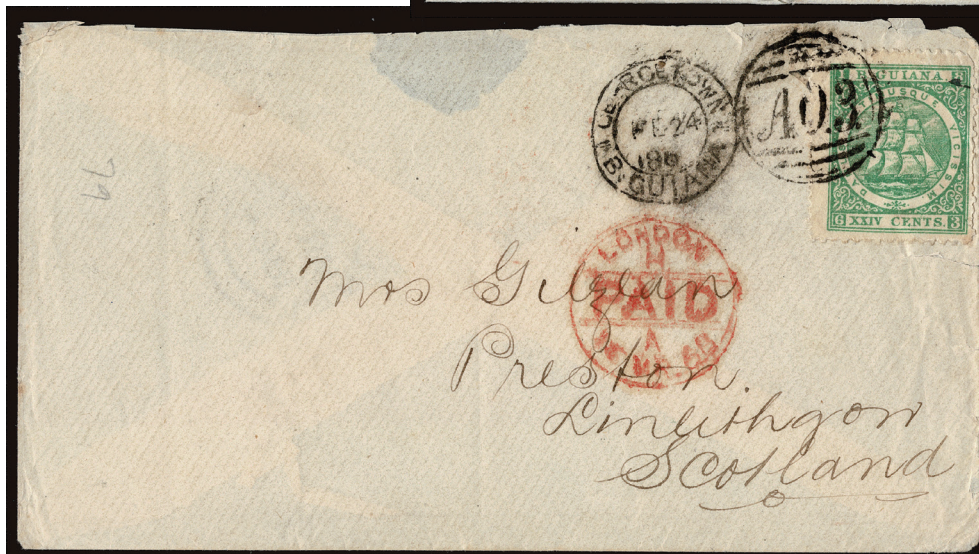 GEORGETOWN
FE 24
186
B. GUIANA
A03
B. GUIANA.
DAMUS PETIMUSQUE VICISSIM
1 8 6 3
XXIV CENTS.
79
LONDON
H
PAID
A
MR 60
Mrs Gilzean
Preston
Linlithgow
Scotland